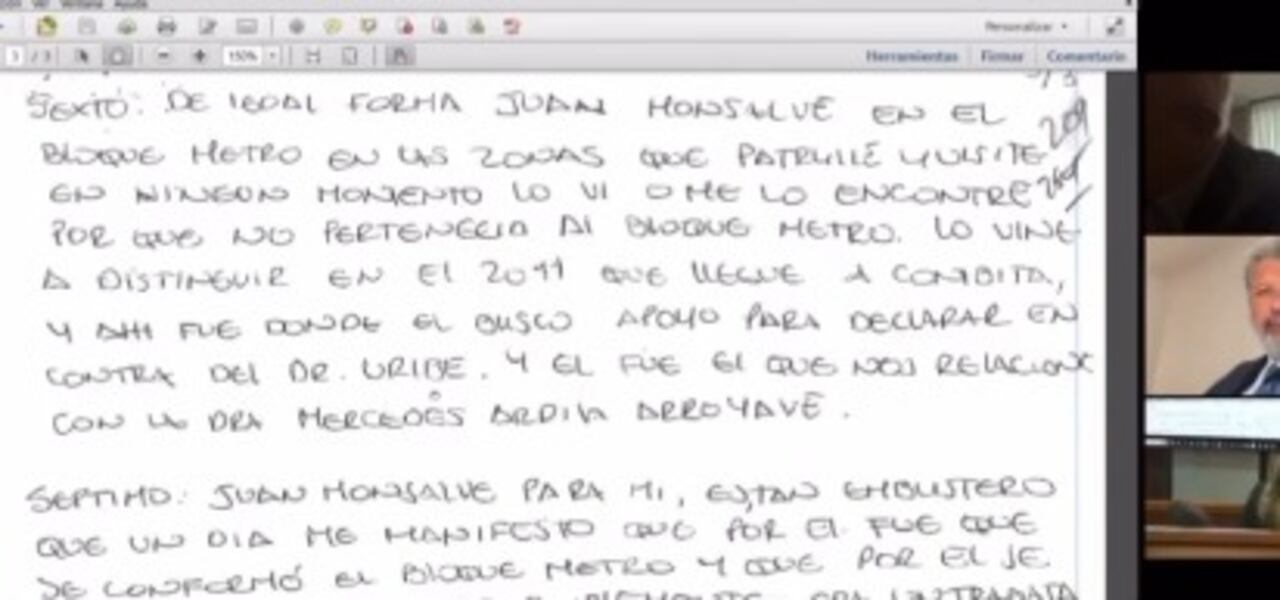 Ventana Ayuda
Personalizar
3 / 3 150% Herramientas Firmar Comentario
209
SEXTO: DE IGUAL FORMA JUAN MONSALVE EN EL
BLOQUE METRO EN LAS ZONAS QUE PATRULLÉ Y VISITE
EN NINGUN MOMENTO LO VI O ME LO ENCONTRE
POR QUE NO PERTENECIA AL BLOQUE METRO. LO VINE
A DISTINGUIR EN EL 2011 QUE LLEGUE A COMBITA,
Y AHI FUE DONDE EL BUSCO APOYO PARA DECLARAR EN
CONTRA DEL DR. URIBE. Y EL FUE EL QUE NOS RELACIONO
CON LA DRA MERCEDES ARDILA ARROYAVE.
SEPTIMO: JUAN MONSALVE PARA MI, ES TAN EMBUSTERO
QUE UN DIA ME MANIFESTO QUE POR EL FUE QUE
SE CONFORMÓ EL BLOQUE METRO Y QUE POR EL SE